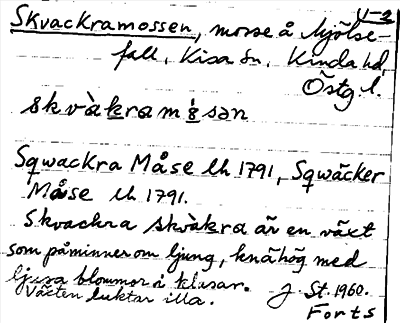 1-2
Skvackramossen, mosse å Mjölse-
fall, Kisa sn, Kinda hd,
Östg. l.
skvàkramɞ̀sən
Sqwackra Måse lh 1791, Sqwäcker
Måse lh 1791.
Skvackra skvàkra är en växt
som påminner om ljung, knähög med
ljusa blommor i klasar.
Växten luktar illa. J. St. 1960.
Forts